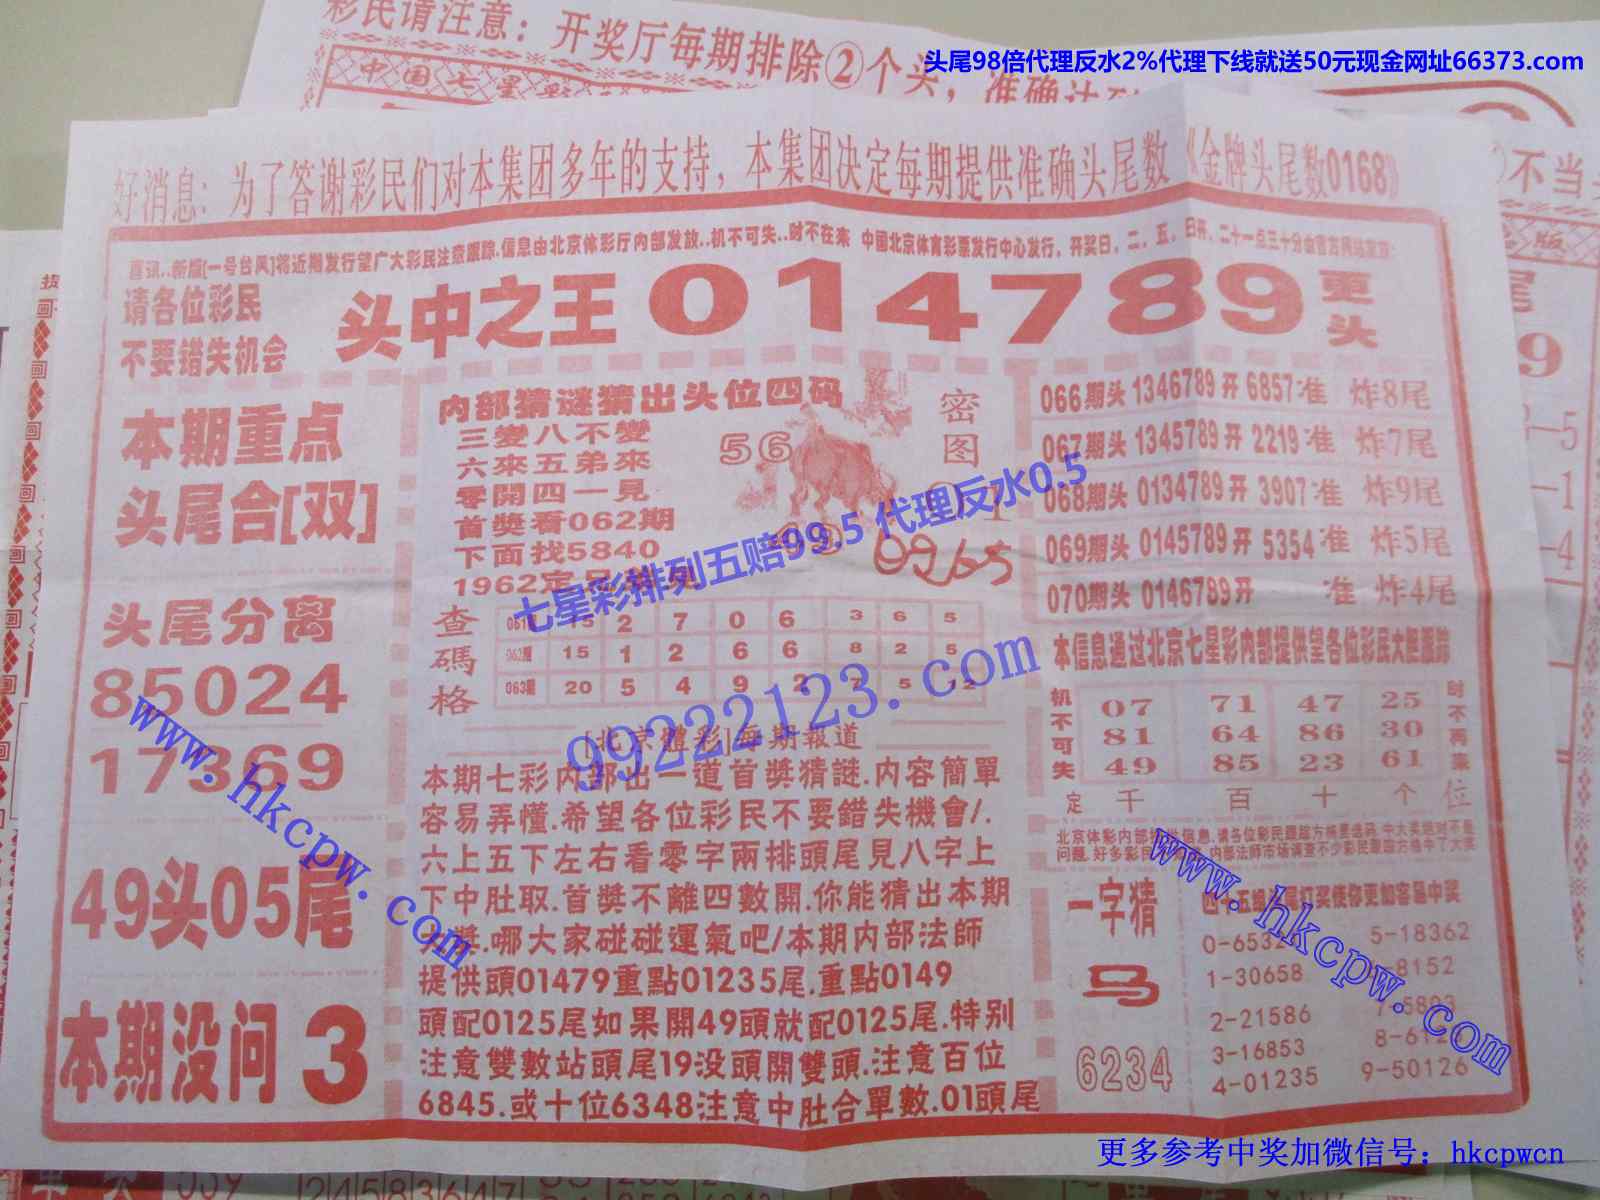 彩民请注意：开奖厅每期排除②个头，准确达到
头尾98倍代理反水2%代理下线就送50元现金网址66373.com
中国七星彩
好消息：为了答谢彩民们对本集团多年的支持，本集团决定每期提供准确头尾数《金牌头尾数0168》
不当
喜讯..新版[一号台风]将近期发行望广大彩民注意跟踪.信息由北京体彩厅内部发放..机不可失..时不在来 中国北京体育彩票发行中心发行，开奖日、二、五、日开、二十一点三十分由官方网站发放:
请各位彩民
不要错失机会
头中之王014789
更头
本期重点
头尾合[双]
头尾分离
85024
17369
49头05尾
本期没问3
内部猜谜猜出头位四码
三變八不變
六來五弟來
零開四一見
首獎看062期
下面找5840
1962定
56
密图
01
七星彩排列五赔99.5 代理反水0.5
查碼格
061期 15 2 7 0 6 3 6 5
062期 15 1 2 6 6 8 2 5
063期 20 5 4 9 2 7 5 12
99222123.com
[北京體彩]每期報道
本期七彩内部出一道首獎猜謎.内容簡單
容易弄懂.希望各位彩民不要錯失機會/.
六上五下左右看零字兩排頭尾見八字上
下中肚取.首獎不離四數開.你能猜出本期
獎.哪大家碰碰運氣吧/本期内部法師
提供頭01479重點01235尾.重點0149
頭配0125尾如果開49頭就配0125尾.特别
注意雙數站頭尾19没頭開雙頭.注意百位
6845.或十位6348注意中肚合單數.01頭尾
066期头 1346789开 6857准 炸8尾
067期头 1345789开 2219准 炸7尾
068期头 0134789开 3907准 炸9尾
069期头 0145789开 5354准 炸5尾
070期头 0146789开 准 炸4尾
本信息通过北京七星彩内部提供望各位彩民大胆跟踪
机不可失
07 71 47 25
81 64 86 30
49 85 23 61
时不再来
定 千 百 十 个 位
一字猜
马
6234
5-18362
1-30658
8152
2-21586
3-16853
4-01235
9-50126
www.hkcpw.com
www.hkcpw.com
更多参考中奖加微信号：hkcpwcn